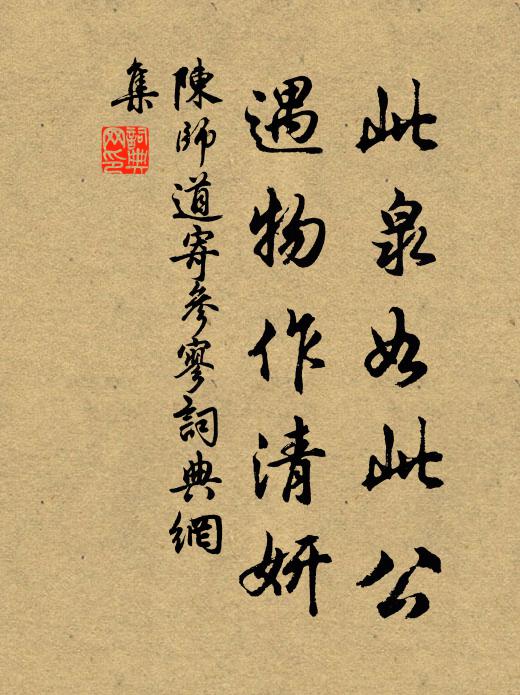 此泉如此公
遇物作清妍
陳師道寄參寥詞典網
集
詞典
网印